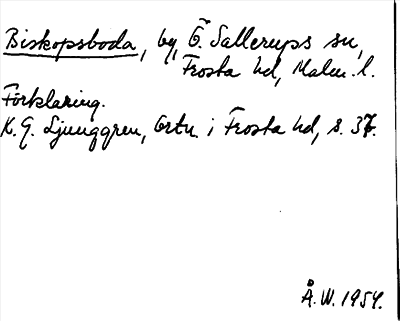 Biskopsboda, by, Ö. Sallerups sn,
Frosta hd, Malm. l.
Förklaring.
K. G. Ljunggren, Ortn i Frosta hd, s. 37.
Å. W. 1954.